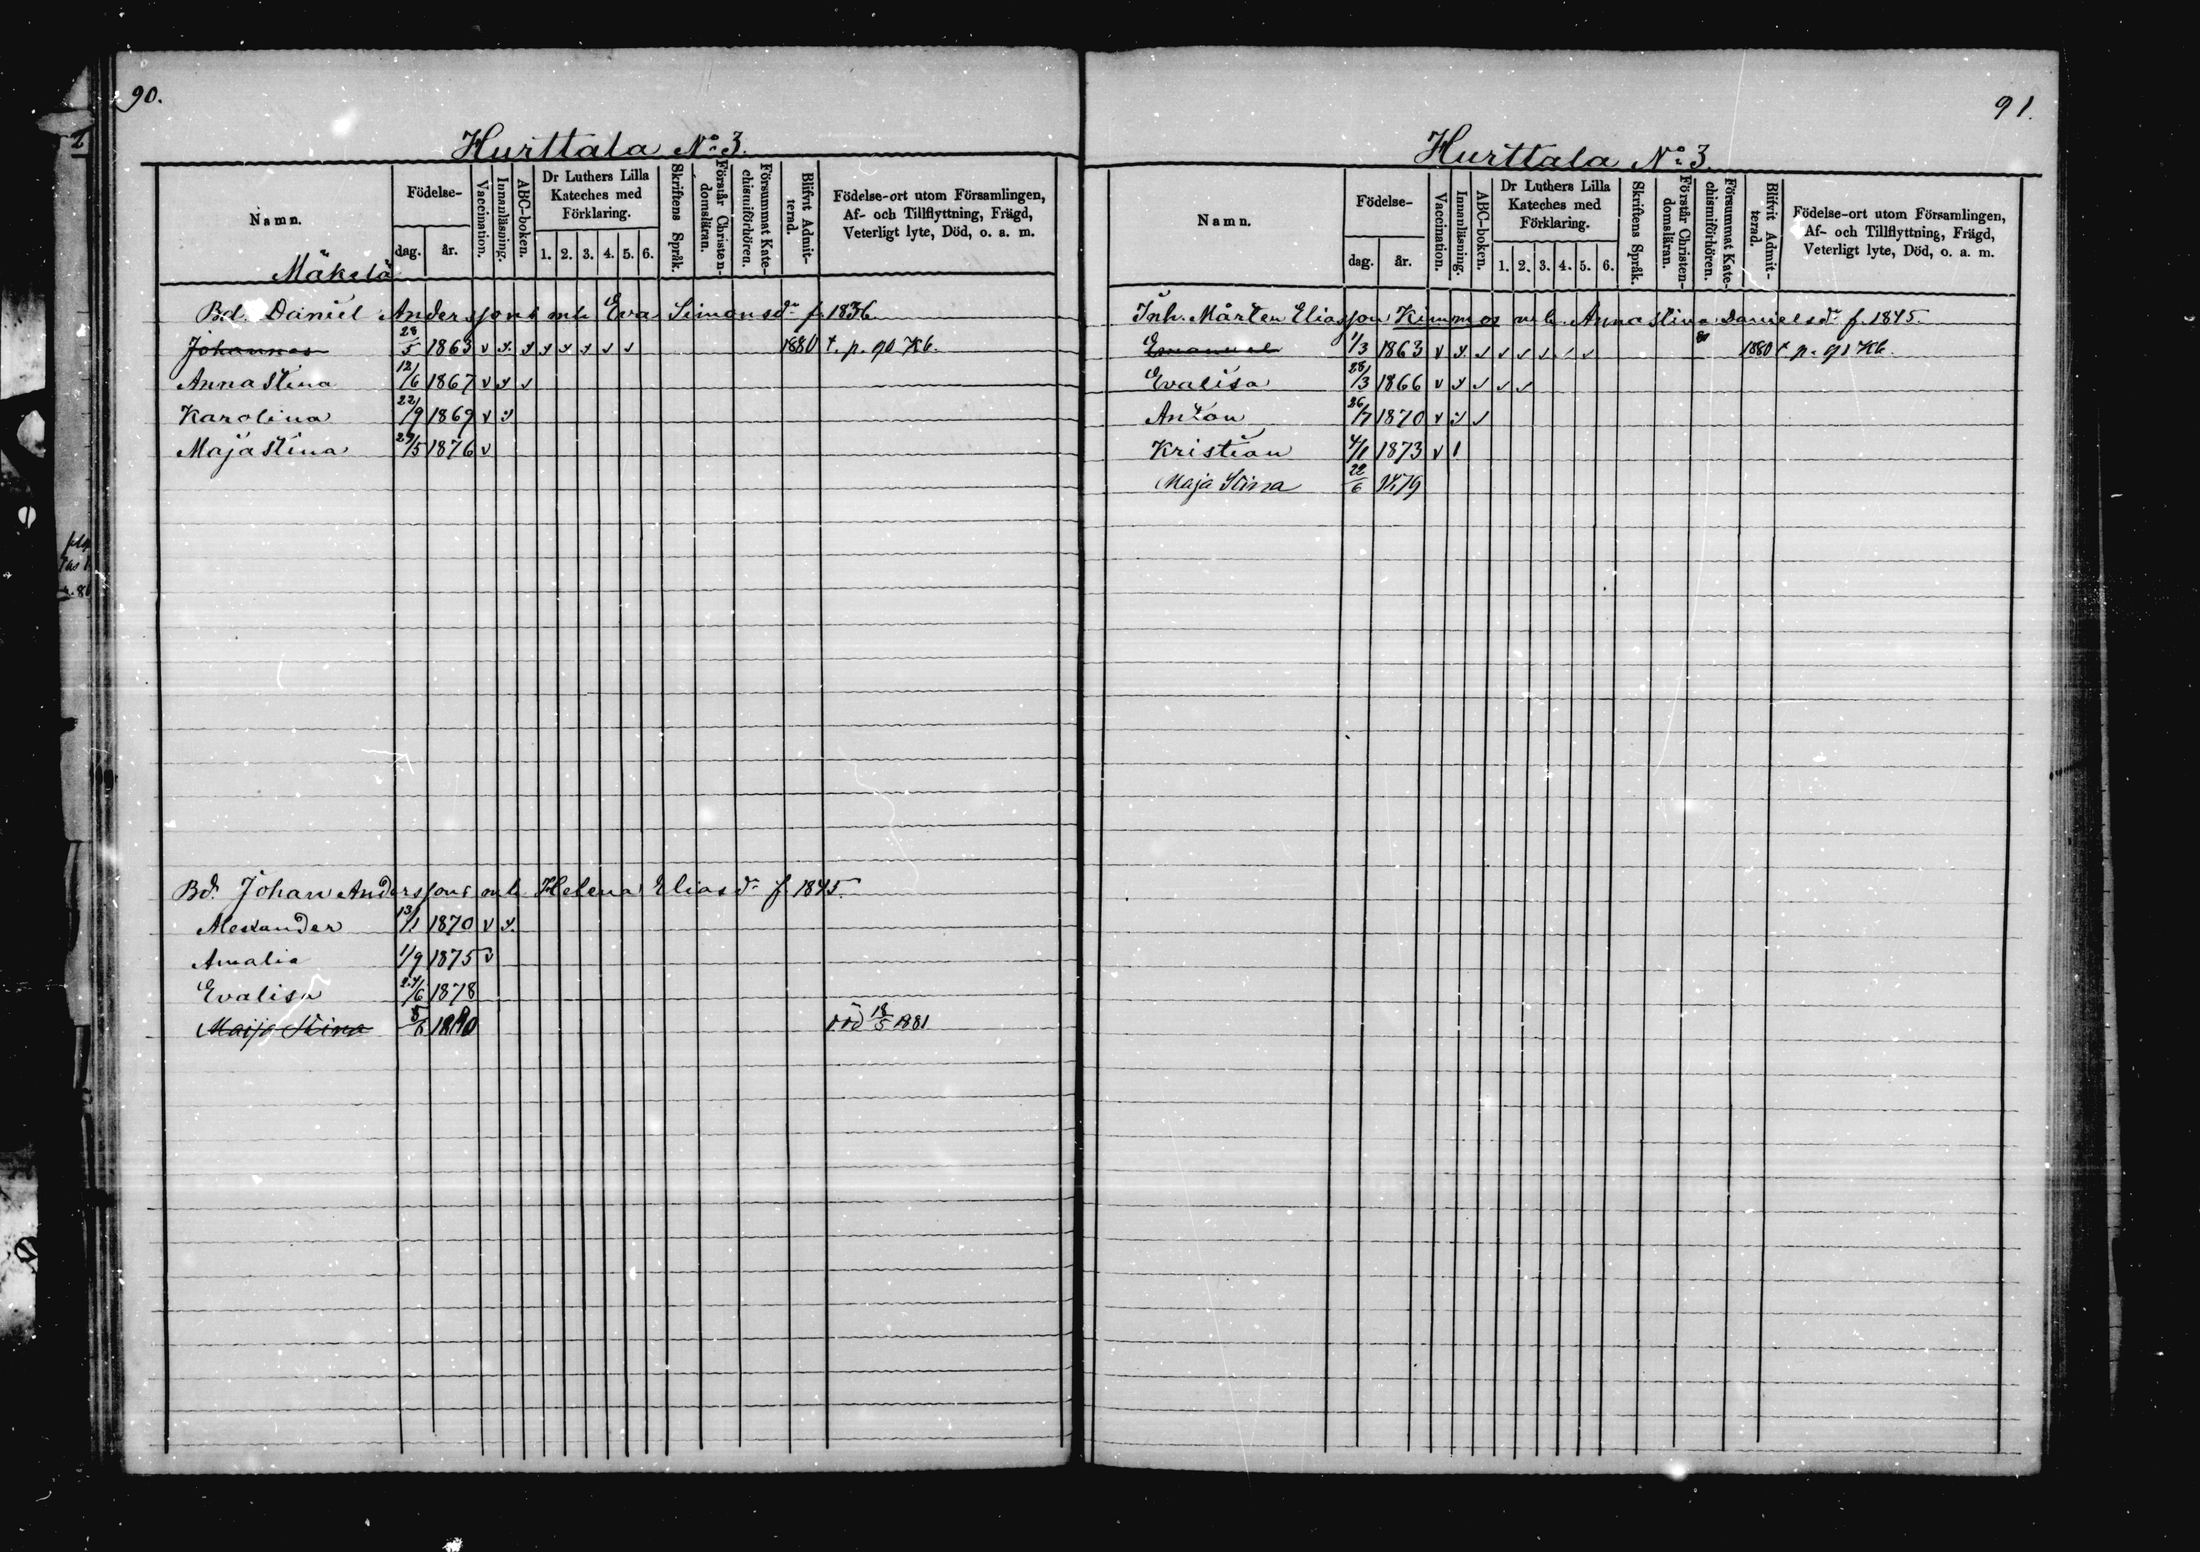 90.
Hurttala No 3.
Namn.
Födelse-
dag.
år.
Vaccination.
Innanläsning.
ABC-boken.
Dr Luthers Lilla Kateches med Förklaring.
1. 2. 3. 4. 5. 6.
Skriftens Språk.
Förstår Christendomsläran.
Försummat Katechismiförhören.
Blifvit Admitterad.
Födelse-ort utom Församlingen,
Af- och Tillflyttning, Frägd,
Veterligt lyte, Död, o. a. m.
Mäkelä
Bd. Daniel Anderssons mb Eva Simonsdr f. 1836
Johannes 28/5 1863 v v v v v v v v 1880 t. p. 90 Kb.
Anna Stina 12/6 1867 v v v
Karolina 22/9 1869 v v
Maja Stina 29/5 1876 v
Bd. Johan Anderssons mb Helena Eliasdr f 1845.
Alexander 13/1 1870 v v.
Amalia 1/9 1875 v
Evalisa 24/6 1878
Maija Stina 1880
död 18/5 1881
91.
Hurttala No 3
Namn.
Födelse-
dag.
år.
Vaccination.
Innanläsning.
ABC-boken.
Dr Luthers Lilla Kateches med Förklaring.
1. 2. 3. 4. 5. 6.
Skriftens Språk.
Förstår Christendomsläran.
Försummat Katechismiförhören.
Blifvit Admitterad.
Födelse-ort utom Församlingen,
Af- och Tillflyttning, Frägd,
Veterligt lyte, Död, o. a. m.
Inh. Mårten Eliasson Kimmos mb. Anna Stina Danielsdr f. 1845.
Emanuel 1/3 1863 v v v v v v v v 1880 t p. 91 Kb.
Evalisa 28/3 1866 v v v v v
Anton 26/7 1870 v v v
Kristian 4/1 1873 v 1
Maja Stina 22/6 1879